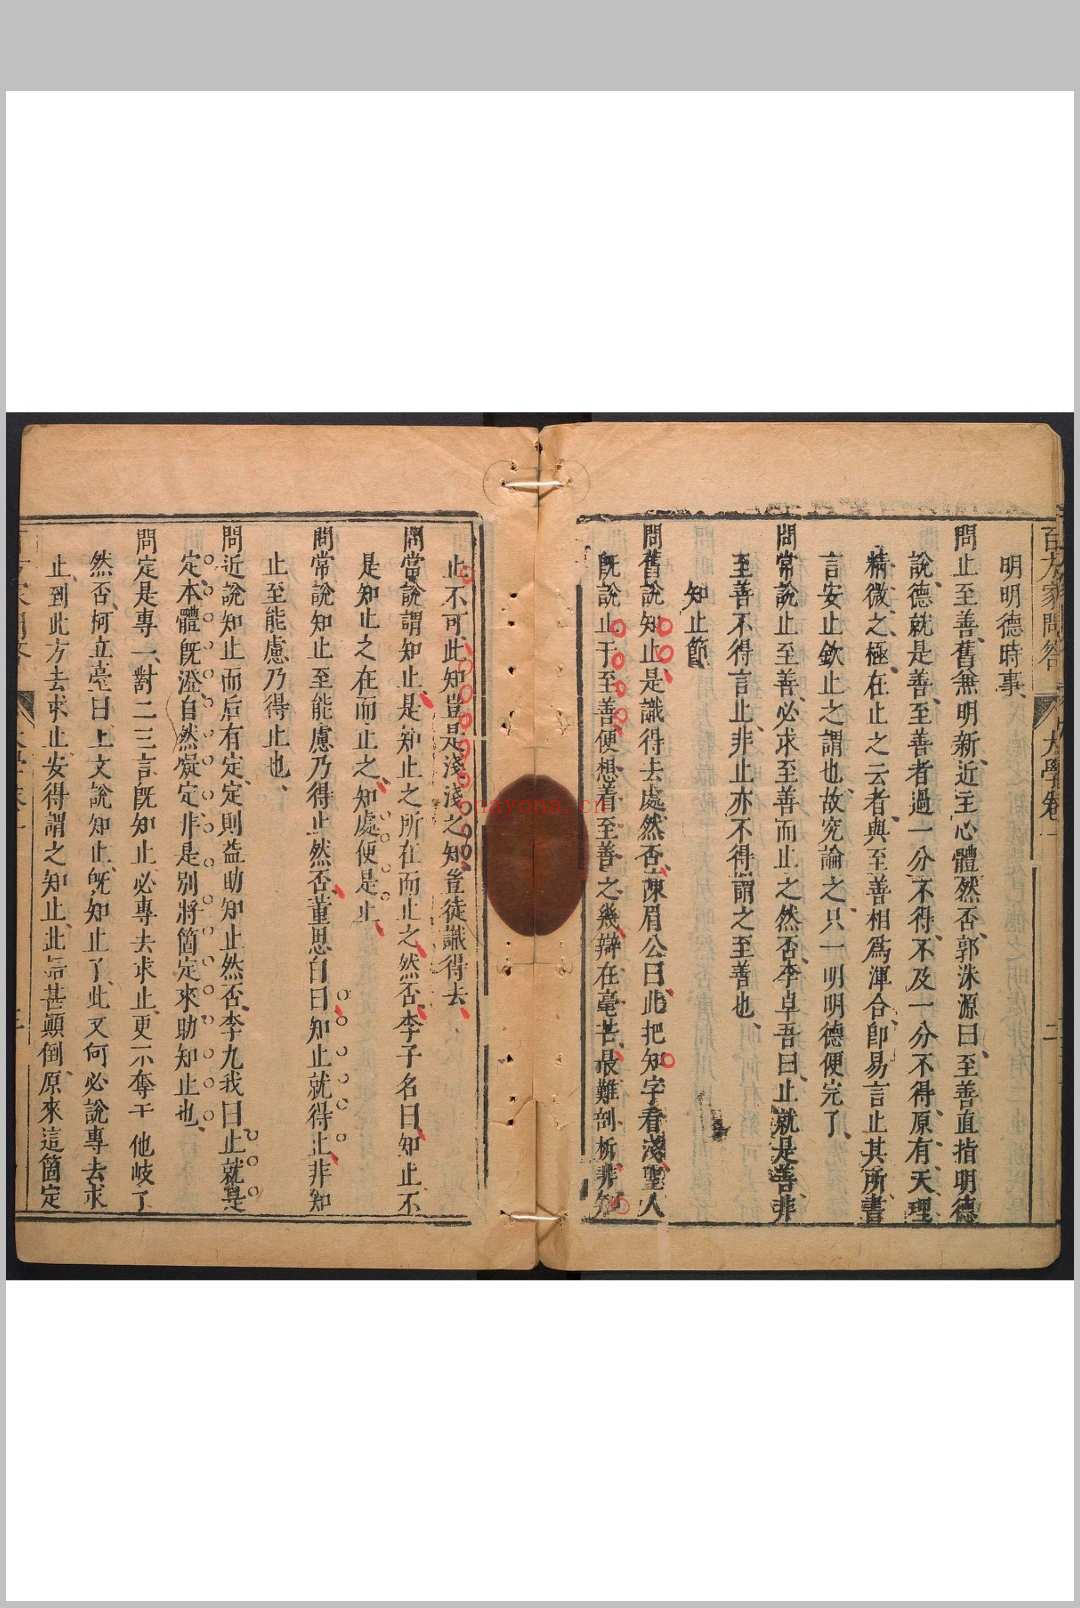 百方家問答 大學卷一 二
明明德時事、
問止至善、舊兼明新、近主心體、然否、郭洙源曰、至善直指明德
說、德就是善、至善者過一分不得、不及一分不得、原有天理
精微之極、在止之云者、與至善相爲渾合、卽易言止其所、書
言安止、欽止之謂也、故究論之、只一明明德便完了、
問常說止至善、必求至善而止之、然否、李卓吾曰、止就是善、非
至善不得言止、非止亦不得謂之至善也、
知止節
問舊說知止、是識得去處、然否、陳眉公曰、此把知字看淺、聖人
旣說止于至善、便想着至善之幾、辯在毫芒、最難剖析、非知
止不可、此知豈是淺淺之知、豈徒識得去、
問嘗說謂知止、是知止之所在而止之、然否、李子名曰、知止不
是知止之在而止之、知處便是止、
問常說知止至能慮乃得止、然否、董思白曰、知止就得止、非知
止至能慮乃得止也、
問近說知止而后有定、定則益助知止、然否、李九我曰、止就是
定、本體旣澄、自然凝定、非是別將箇定來助知止也、
問定是專一、對二三言、旣知止、必專去求止、更不奪于他岐了、
然否、柯立臺曰、上文說知止、旣知止了、此又何必說專去求
止、到此方去求止、安得謂之知止、此言甚顛倒、原來這箇定